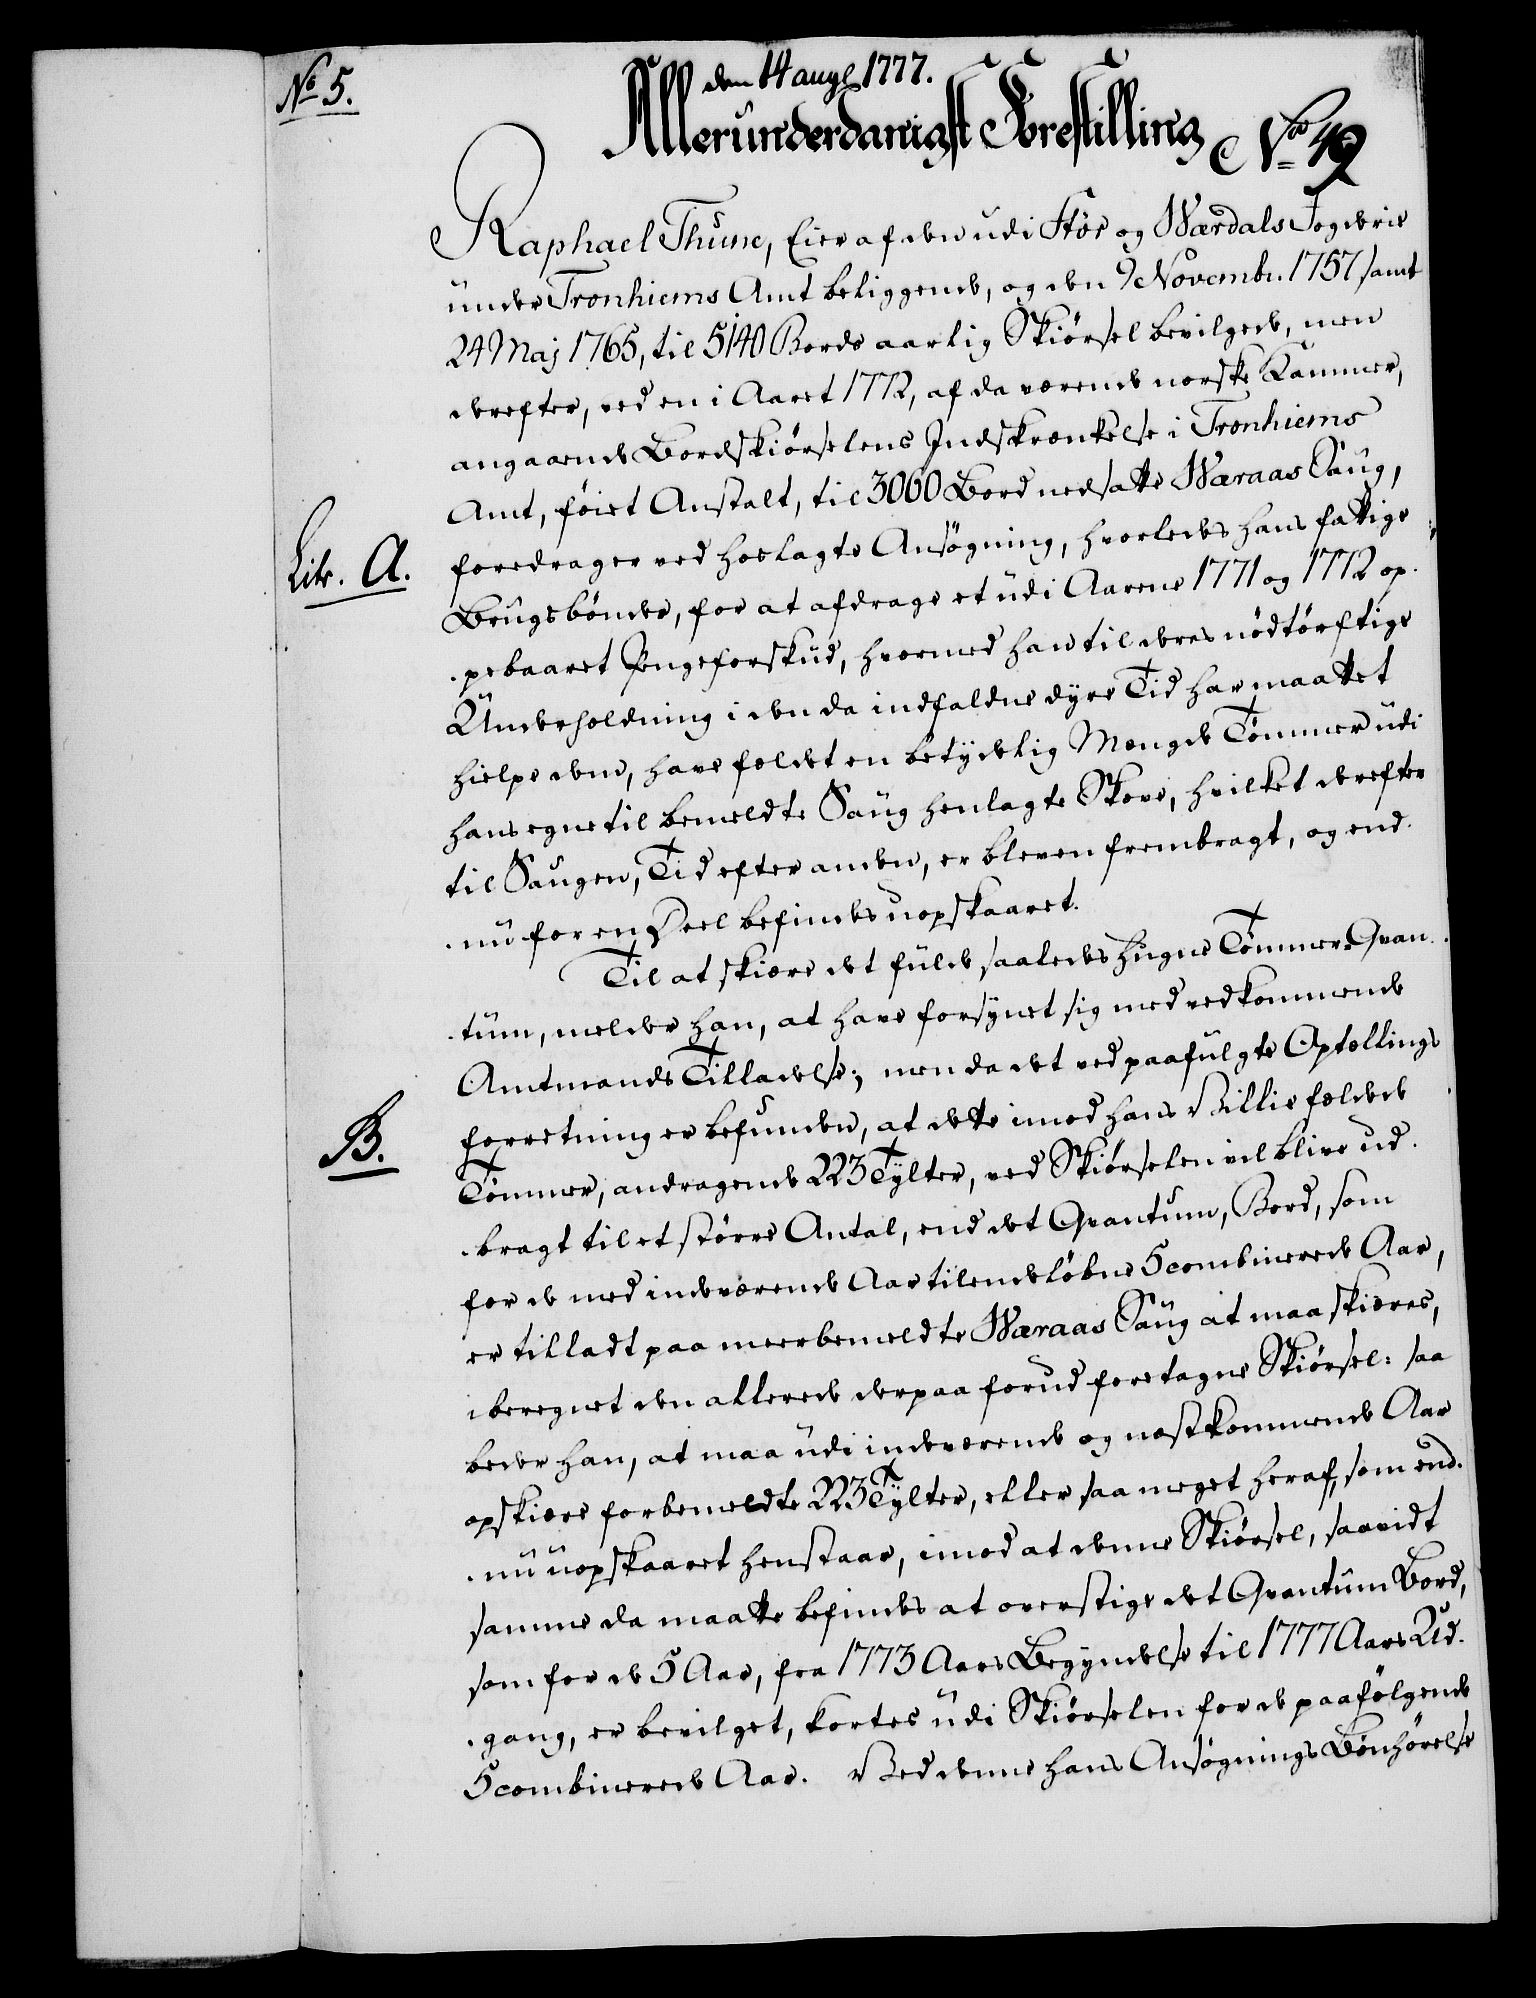 No 5.
den 14 aug 1777.
Allerunderdanigst Forestilling
No 49
Raphael Thune, Eier af den udi Stör og Værdals Fogderie
under Tronhiems Amt beliggende, og den 9 Novembr. 1757 samt
24 Maj 1765, til 5140 Bords aarlig Skiørsel bevilgede, men
derefter, ved en i Aaret 1772, af da værende norske Kammer,
angaaende Bordskiørselens Indskrænkelse i Tronhiems
Amt, føiet Anstalt, til 3060 Bord nedsatte Væraas Saug,
Litr. A.
foredrager ved hoslagte Ansøgning, hvorledes hans fattige
Brugsbønder, for at afdrage et udi Aarene 1771 og 1772 op-
pebaaret Pengeforskud, hvormed han til deres nødtørftige
Underholdning i den da indfaldne dyre Tid har maattet
hielpe dem, have fældet en betydelig Mængde Tømmer udi
hans egne til bemeldte Saug henlagte Skove, hvilket derefter
til Saugen, Tid efter anden, er bleven frembragt, og end-
nu for en Deel befindes uopskaaret.
Til at skiære det fulde saaledes hugne Tømmer Qvan-
tum, melder han, at have forsynet sig med vedkommende
Amtmands Tilladelse; men da det ved paafulgte Optællings
B.
forretning er befunden, at dette imod hans Villie fældede
Tømmer, andragende 223 Tylter, ved Skiørselen vil blive ud-
bragt til et større Antal, end det Qvantum, Bord, som
for de med indeværende Aar tilendeløbne 5 combinerede Aar,
er tilladt paa meerbemeldte Væraas Saug at maa skiæres,
iberegnet den allerede derpaa forud foretagne Skiørsel: saa
beder han, at maa udi indeværende og næstkommende Aar
opskiære forbemeldte 223 Tylter, eller saa meget heraf, som end-
nu uopskaaret henstaar, imod at denne Skiørsel, saavidt
samme da maatte befindes at overstige det Qvantum Bord,
som for de 5 Aar, fra 1773 Aars Begyndelse til 1777 Aars Ud-
gang, er bevilget, kortes udi Skiørselen for de paafølgende
5 combinerede Aar. Ved denne hans Ansøgnings Bønhørelse